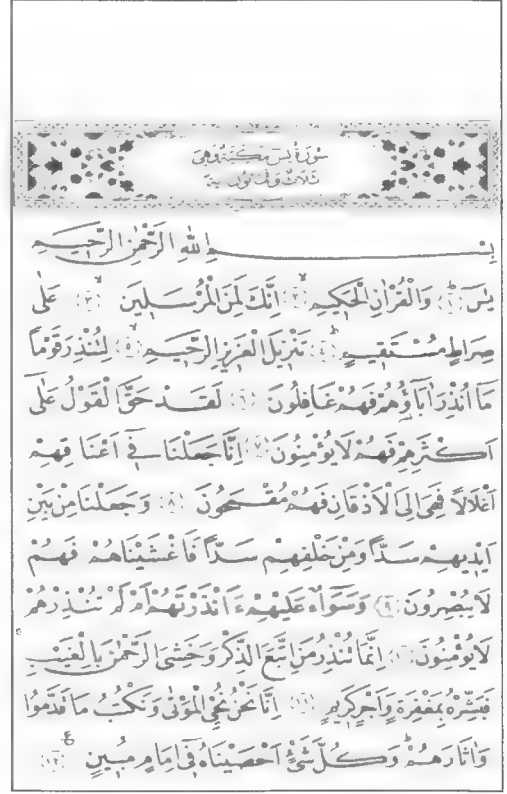 سُورَةُ يٰسٓ مَكِّيَّةٌ وَهِىَ
ثَلَاثٌ وَثَمَانُونَ اٰيَةً
بِسْــــــمِ اللّٰهِ الرَّحْمٰنِ الرَّحٖيــمِ
يٰسٓۜ ﴿١﴾ وَالْقُرْاٰنِ الْحَكٖيمِۙ ﴿٢﴾ اِنَّكَ لَمِنَ الْمُرْسَلٖينَۙ ﴿٣﴾ عَلٰى
صِرَاطٍ مُسْتَقٖيمٍۜ ﴿٤﴾ تَنْزٖيلَ الْعَزٖيزِ الرَّحٖيمِۙ ﴿٥﴾ لِتُنْذِرَ قَوْمًا
مَٓا اُنْذِرَ اٰبَٓاؤُ۬هُمْ فَهُمْ غَافِلُونَ ﴿٦﴾ لَقَدْ حَقَّ الْقَوْلُ عَلٰٓى
اَكْثَرِهِمْ فَهُمْ لَا يُؤْمِنُونَ ﴿٧﴾ اِنَّا جَعَلْنَا فٖٓى اَعْنَاقِهِمْ
اَغْلَالًا فَهِىَ اِلَى الْاَذْقَانِ فَهُمْ مُقْمَحُونَ ﴿٨﴾ وَجَعَلْنَا مِنْ بَيْنِ
اَيْدٖيهِمْ سَدًّا وَمِنْ خَلْفِهِمْ سَدًّا فَاَغْشَيْنَاهُمْ فَهُمْ
لَا يُبْصِرُونَ ﴿٩﴾ وَسَوَٓاءٌ عَلَيْهِمْ ءَاَنْذَرْتَهُمْ اَمْ لَمْ تُنْذِرْهُمْ
لَا يُؤْمِنُونَ ﴿١٠﴾ اِنَّمَا تُنْذِرُ مَنِ اتَّبَعَ الذِّكْرَ وَخَشِىَ الرَّحْمٰنَ بِالْغَيْبِۚ
فَبَشِّرْهُ بِمَغْفِرَةٍ وَاَجْرٍ كَرٖيمٍ ﴿١١﴾ اِنَّا نَحْنُ نُحْيِ الْمَوْتٰى وَنَكْتُبُ مَا قَدَّمُوا
وَاٰثَارَهُمْۜ وَكُلَّ شَىْءٍ اَحْصَيْنَاهُ فٖٓى اِمَامٍ مُبٖينٍ ﴿١٢﴾ ع